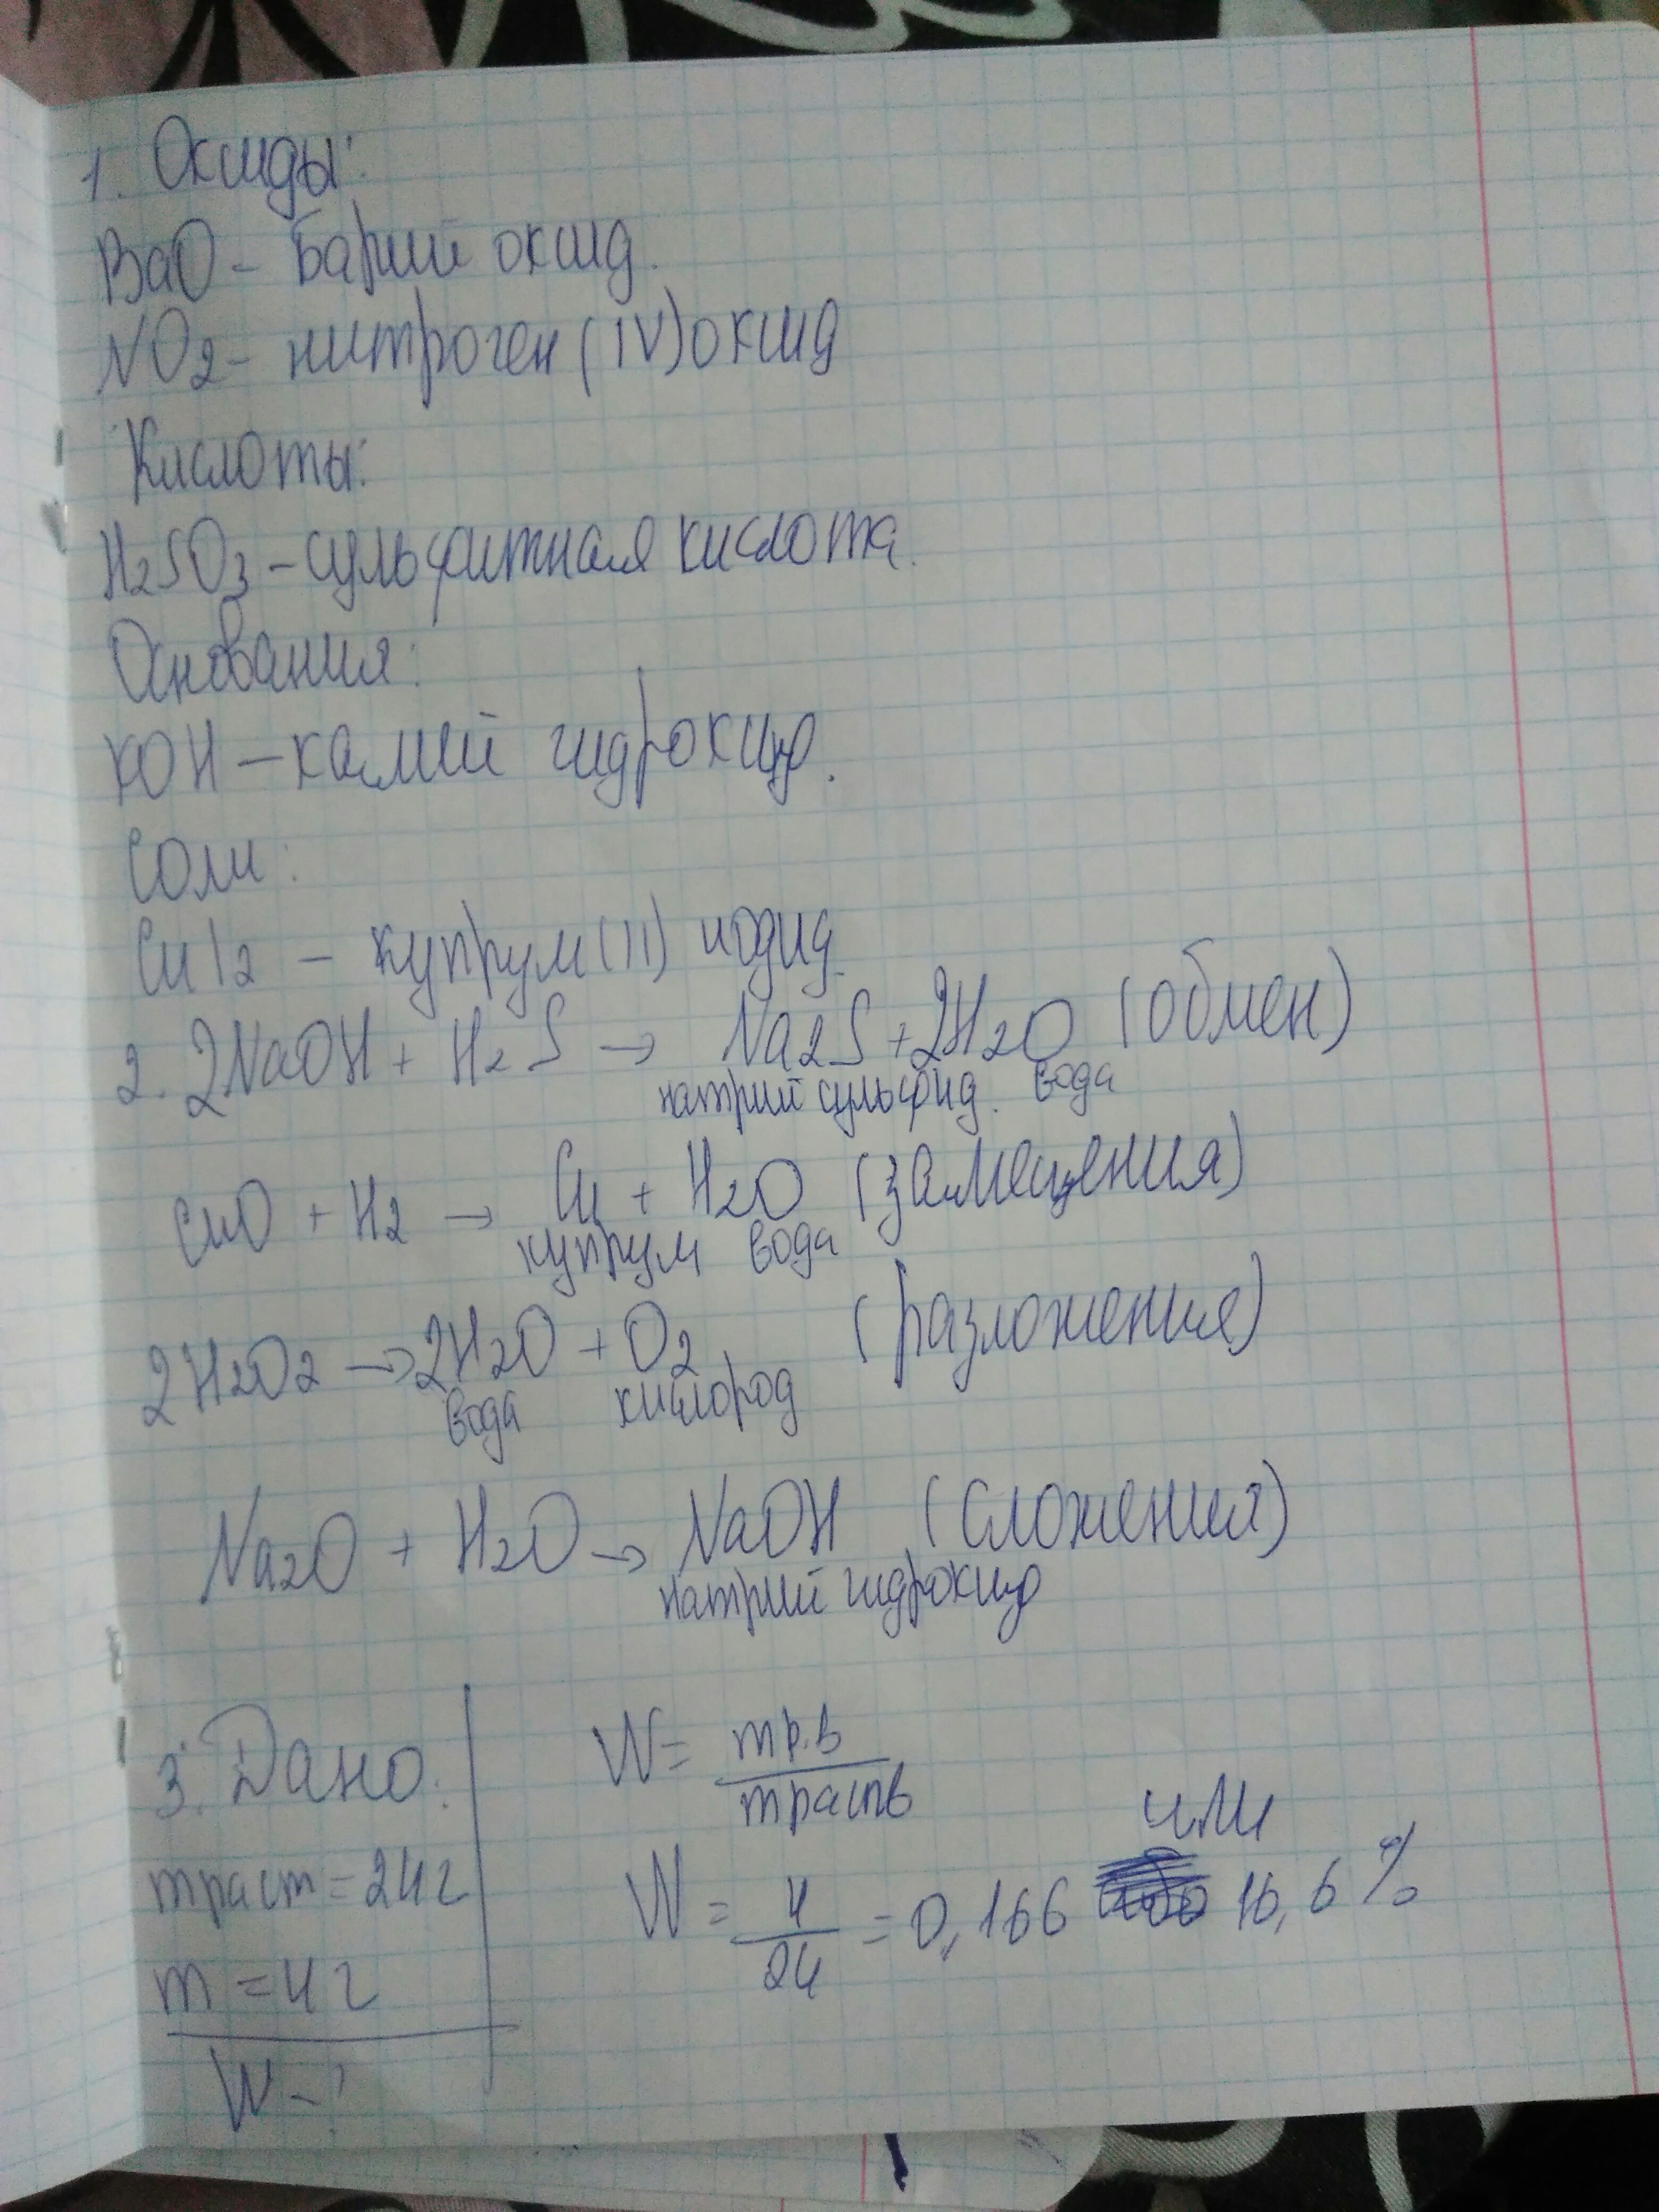 1. Оксиды:
BaO - Барий оксид.
NO2 - нитроген (IV) оксид
Кислоты:
H2SO3 - сульфитная кислота.
Основания:
KOH - калий гидроксид.
Соли:
CuI2 - купрум (II) иодид.
2. 2NaOH + H2S → Na2S + 2H2O (обмен)
натрий сульфид. вода
CuO + H2 → Cu + H2O (замещения)
купрум вода
2H2O2 → 2H2O + O2 (разложения)
вода кислород
Na2O + H2O → NaOH (сложения)
натрий гидроксид
3. Дано:
mраст = 24г
m = 4г
W - ?
W = mр.в / mраств
W = 4 / 24 = 0,166 или 16,6 %